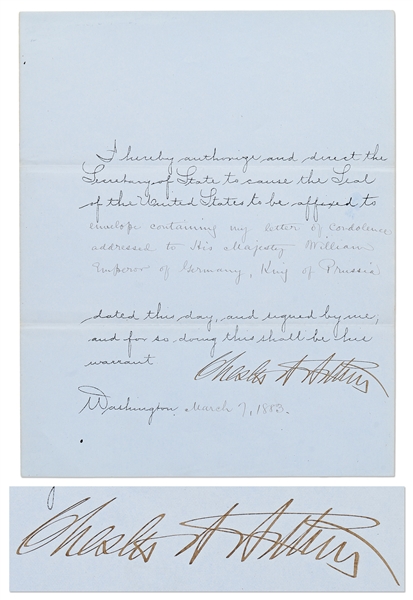 I hereby authorize and direct the
Secretary of State to cause the Seal
of the United States to be affixed to
envelope containing my letter of condolence
addressed to His Majesty William
Emperor of Germany, King of Prussia
dated this day, and signed by me;
and for so doing this shall be his
warrant
Chester A Arthur
Washington, March 7, 1883.
Chester A Arthur